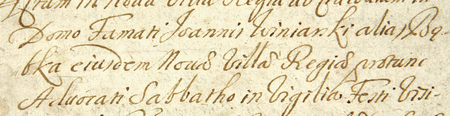 in Nova Villa Regia ad
Domo Famati Joannis Winiarski alias Bą-
bka eiusdem Novæ Villæ Regiæ protunc
Advocati Sabbatho in Vigilia Festi Visi-